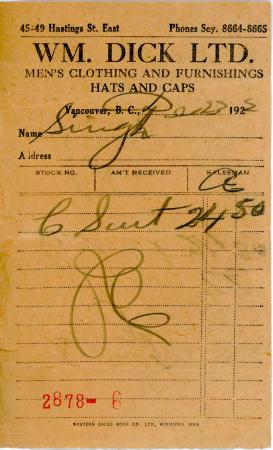 45-49 Hastings St. East Phones Sey. 8664-8665
WM. DICK LTD.
MEN'S CLOTHING AND FURNISHINGS
HATS AND CAPS
Vancouver, B. C., 1922
Name Singh
Address
STOCK NO. AM'T RECEIVED SALESMAN
C Suit 24 50
2878- 6
WESTERN SALES BOOK CO. LTD., WINNIPEG, MAN.